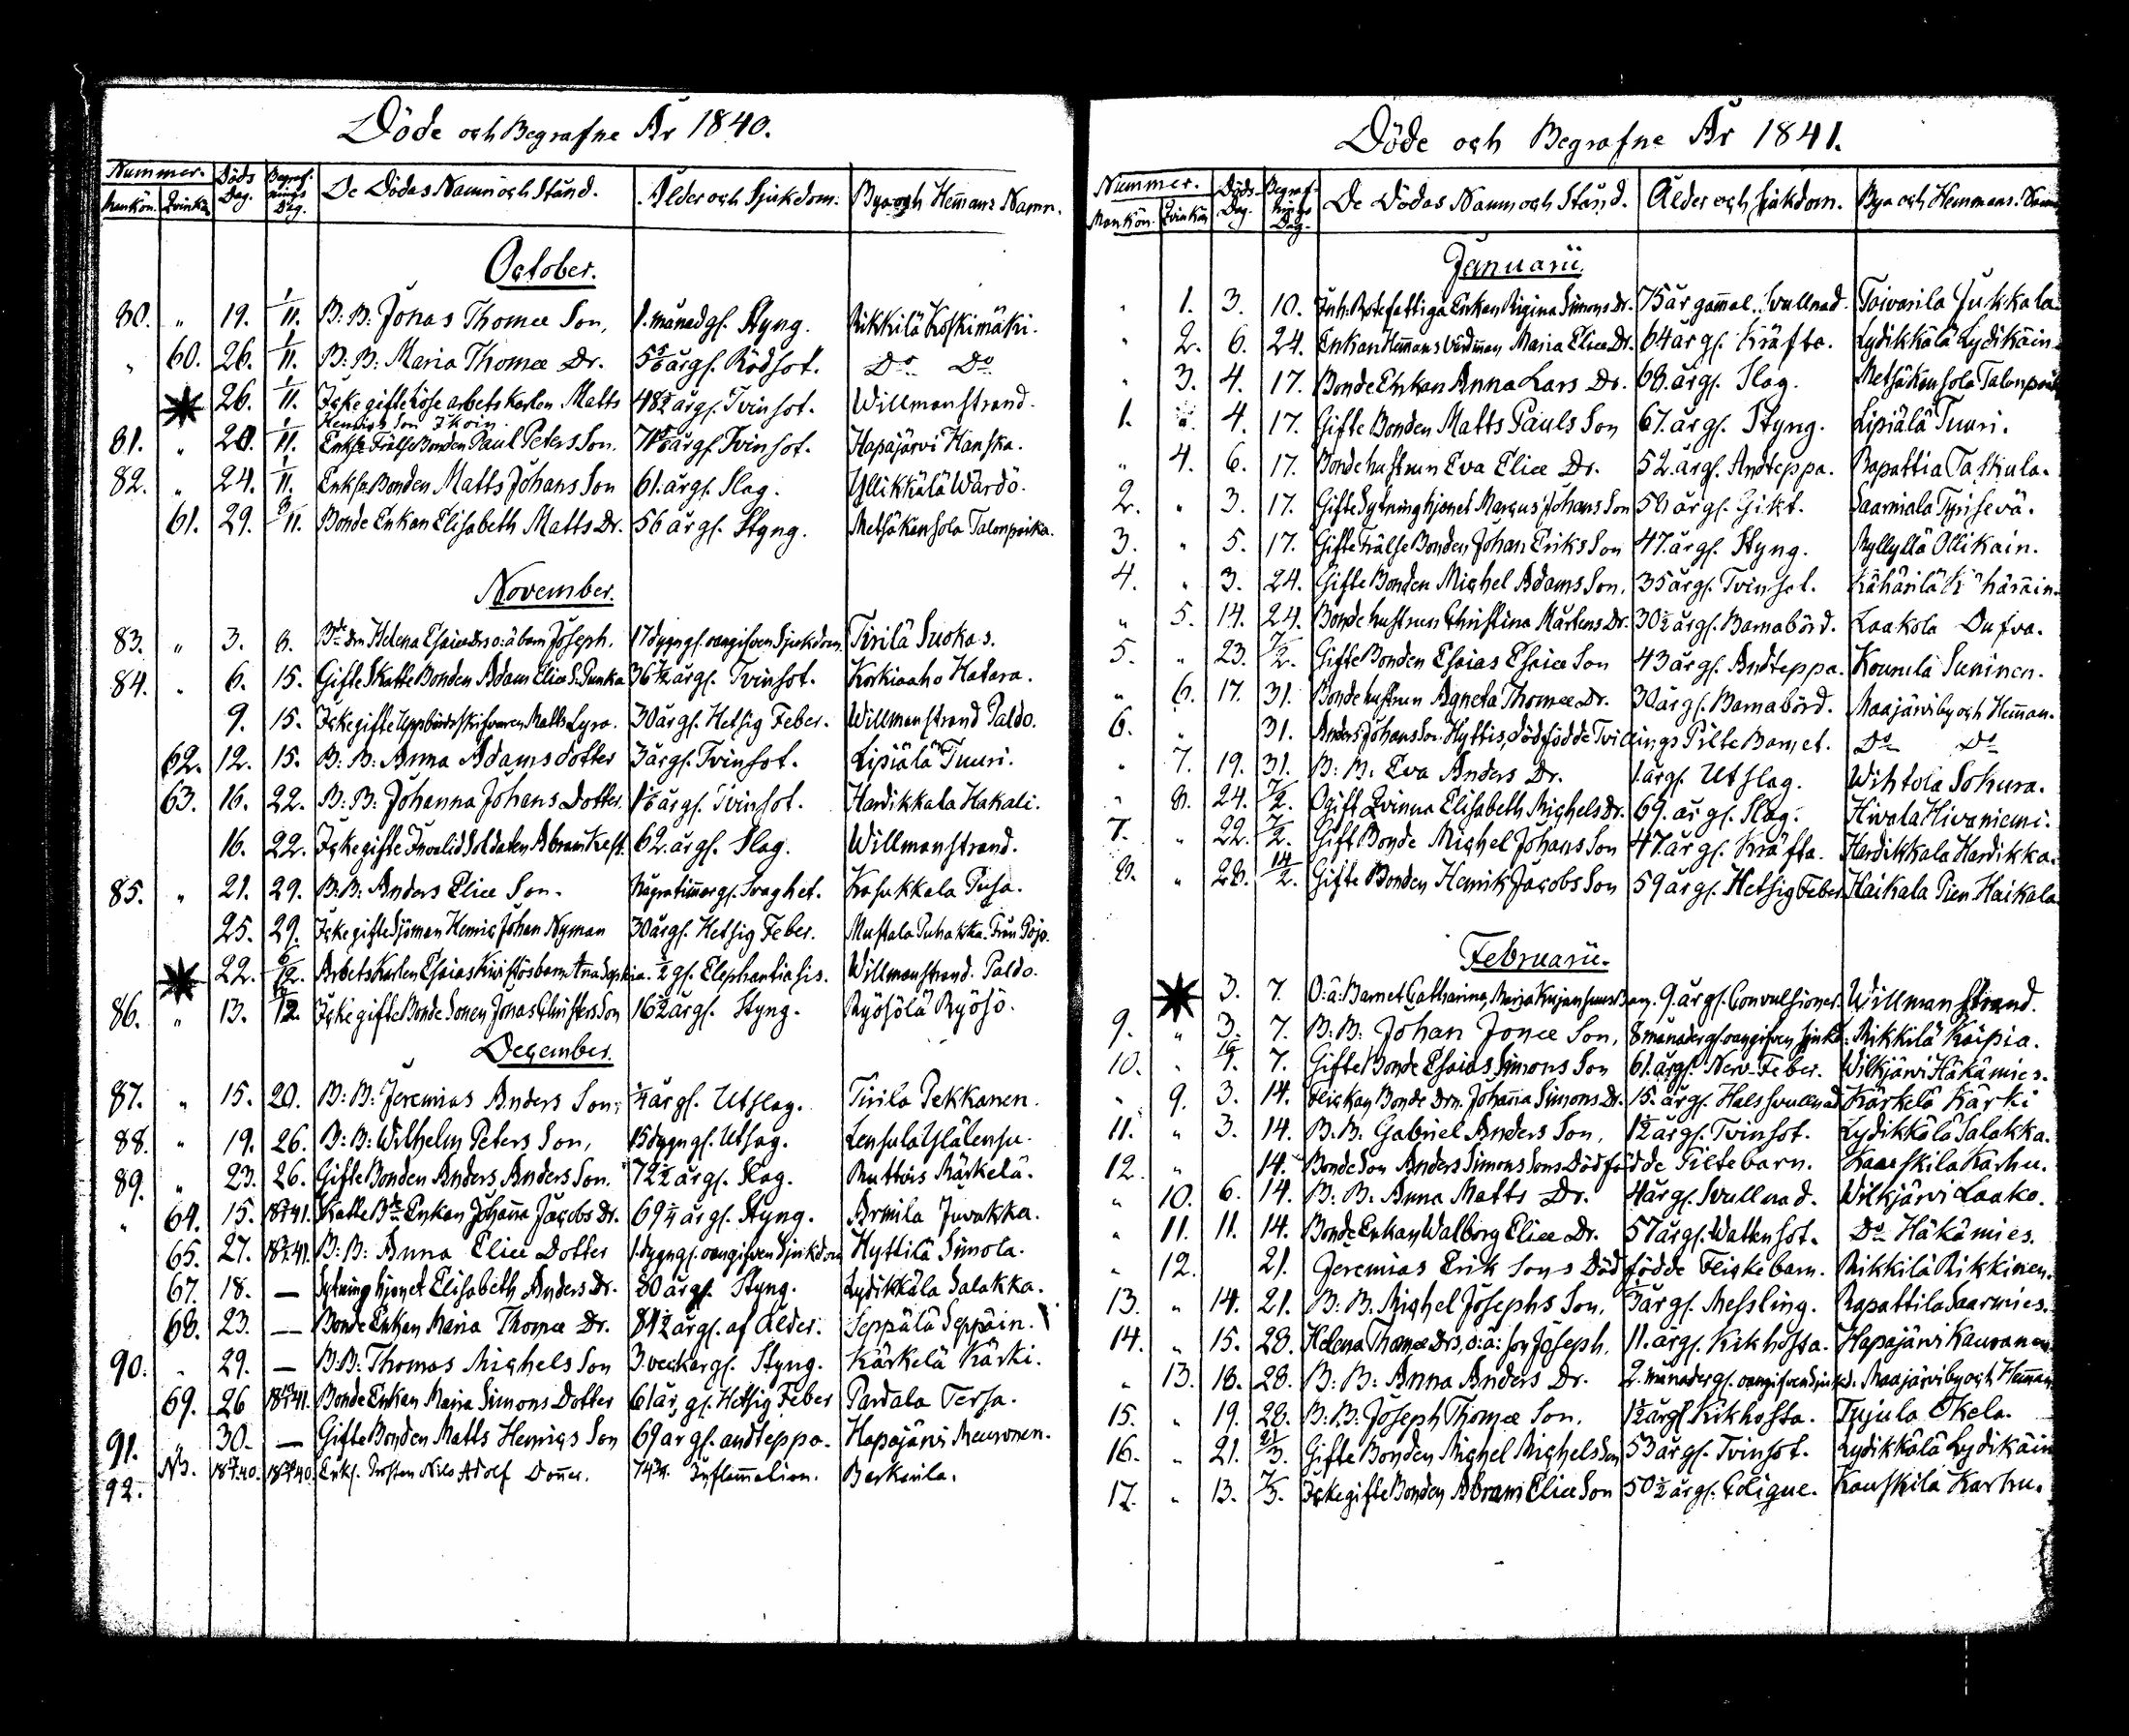 Döde och Begrafne År 1840.
Nummer. Döds Dag. Begrafnings Dag. De Dödas Namn och Stånd. Ålder och Sjukdom. By och Hemans Namn.
Mankön. Qvinkön
October.
80. " 19. 1/11. B: B: Jonas Thomæ Son, 1. månad gl. Styng. Rikkilä Koskimäki.
" 60. 26. 1/11. B: B: Maria Thomæ Dr. 5 5/6 årgl. Rödsot. Do Do
26. 1/11. Icke gifte löse arbets karlen Matts 48 1/2 årgl. Tvinsot. Willmanstrand.
Henrics Son Ikoin.
81. " 20. 1/11. Enkl. Frälse Bonden Paul Peters Son. årgl. Tvinsot. Hapajärvi Hanska.
82. " 24. 1/11. Enkl. Bonden Matts Johans Son 61. årgl. Slag. Yllikkälä Wårdö.
61. 29. 8/11. Bonde Enkan Elisabeth Matts Dr. 56 årgl. Styng. Metsäkansola Talonpoika.
November.
83. " 3. 8. Helena Esaiæ Drs o: ä barn Joseph. 17 dygn gl. oangifven Sjukdom. Tirilä Suokas.
84. " 6. 15. Gifte Skatte Bonden Adam Eliæ S. Punka 36 årgl. Tvinsot. Korkiaaho Hatara.
9. 15. Icke gifte Uppbördsskrifvaren Matts Lyra. 30 årgl. Hetsig Feber. Willmanstrand Paldo.
62. 12. 15. B: B: Anna Adams dotter 3 årgl. Tvinsot. Lipiälä Tuuri.
63. 16. 22. B: B: Johanna Johans Dotter. årgl. Tvinsot. Hardikkala Hakali.
16. 22. Icke gifte Invalid Soldaten Abram Kest. 62. årgl. Slag. Willmanstrand.
85. " 21. 29. B: B: Anders Eliæ Son. Några timar gl. Svaghet. Kasukkala Pusa.
25. 29. Icke gifte Sjöman Henric Johan Nyman 30 årgl. Hetsig Feber. Mustala Puhakka. Från Pojo.
22. 6/12. Arbets Karlen Esaias barn Ana Sophia. 1/2 gl. Elephantiasis. Willmanstrand. Paldo.
86. " 13. Icke gifte Bonde Sonen Jonas Christers Son 16 1/2 årgl. Styng. Ryösölä Ryösö.
December.
87. " 15. 20. B: B: Jeremias Anders Son, 1/4 årgl. Utslag. Tirilä Pekkanen.
88. " 19. 26. B: B: Wilhelm Peters Son, 15 dygn gl. Utslag. Lensula Ylälensu.
89. " 23. 26. Gifte Bonden Anders Anders Son. 72 1/2 årgl. Slag. Ruttois Kärkelä.
" 64. 15. Skatte Bde Enkan Johana Jacobs Dr. 69 1/4 årgl. Styng. Armila Juvakka.
65. 27. B: B: Anna Eliæ Dotter 1. dygn gl. oangifven Sjukdom Hyttilä Simola.
67. 18. — Sytning hjonet Elisabeth Anders Dr. 80 årgl. Styng. Lydikkälä Salakka.
68. 23. — Bonde Enkan Maria Thomæ Dr. 84 1/2 årgl. af Ålder. Seppälä Seppäin.
90. " 29. — B: B: Thomas Michels Son 3. veckor gl. Styng. Kärkelä Kärki.
69. 26 Bonde Enkan Maria Simons Dotter 61 år, gl. Hetsig Feber Pardala Tersa.
91. " 30. — Gifte Bonden Matts Henrics Son 69 år gl. andteppa. Hapajärvi Meuronen.
92. NB. Enkl. Prosten Nils Adolf Doner. 74 Inflamation. Barkarila.
Döde och Begrafne År 1841.
Nummer. Döds Dag. Begrafnings Dag. De Dödas Namn och Stånd. Ålder och Sjukdom. Bya och Hemmans Namn
Mankön. Qvinkön
Januarii.
" 1. 3. 10. Inh. Rotefattiga Enkan Rigina Simons Dr. 75 år gamal. Svullnad. Toivarila Jukkala.
" 2. 6. 24. Enkan Maria Eliæ Dr. 64 år gl. Kräfta. Lydikkälä Lydikäin.
" 3. 4. 17. Bonde Enkan Anna Lars Dr. 68. årgl. Slag. Metsäkansola Talonpoik
1. " 4. 17. Gifte Bonden Matts Pauls Son 67. år gl. Styng. Lipiälä Tuuri.
" 4. 6. 17. Bonde hustrun Eva Eliæ Dr. 52. årgl. Andteppa. Rapattia Taskula.
2. " 3. 17. Gifte Sytning hjonet Marcus Johans Son 58 årgl. Gikt. Saarniala Tyrisevä.
3. " 5. 17. Gifte Frälse Bonden Johan Eriks Son 47. årgl. Styng. Myllylä Ollikain.
4. " 3. 24. Gifte Bonden Michel Adams Son, 35 årgl. Tvinsot. Kähärilä Kähäräin.
" 5. 14. 24. Bonde hustrun Christina Mårtens Dr. 30 1/2 årgl. Barnabörd. Laakola Dufva.
5. " 23. 7/2. Gifte Bonden Esaias Esaiæ Son 43 årgl. Andteppa. Kourula Suninen.
" 6. 17. 31. Bonde hustrun Agneta Thomæ Dr. 30 årgl. Barnabörd. Maajärvi by och Heman.
6. " 31. Anders Johans Son Hyttis, dödfödde Tvillings Pilte Barnet. Do Do
" 7. 19. 31. B: B: Eva Anders Dr. 1. årgl. Utslag. Wihtola Sohura.
" 8. 24. 7/2. Ogift Qvinna Elisabeth Michels Dr. 69. år gl. Slag. Hivala Hivaniemi.
7. " 22. 7/2. Gift Bonde Michel Johans Son 47. år gl. Kräfta. Hardikkala Hardikka.
8. " 28. 14/2. Gifte Bonden Henrik Jacobs Son 59 årgl. Hetsig Feber. Haikala Pien Haikala
Februarii.
3. 7. O: ä: Barnet Catharina, Maria 9. årgl. Convulsioner. Willmanstrand.
9. " 3. 7. B: B: Johan Jonæ Son, 8 månader gl. oangifven sjukd. Rikkilä Kaipia.
10. " 7. Gifte Bonde Esaias Simons Son 61. årgl. Nerv-Feber. Wilkjärvi Häkämies.
" 9. 3. 14. Flickan Bonde Drn. Johana Simons Dr. 15. årgl. Halssvullnad Kärkelä Kärki
11. " 3. 14. B: B: Gabriel Anders Son, 1 1/2 årgl. Tvinsot. Lydikkälä Salakka.
12. " 14. Bonde Son Anders Simons Sons Dödfödde Piltebarn. Kauskila Karhu.
" 10. 6. 14. B: B: Anna Matts Dr. 4 årgl. Svullnad. Wilkjärvi Laako.
" 11. 11. 14. Bonde Enkan Walborg Eliæ Dr. 57 årgl. Wattensot. Do Häkämies.
" 12. 21. Jeremias Erik Sons Dödfödde Flickebarn. Rikkilä Rikkinen.
13. " 14. 21. B: B: Michel Josephs Son, 3 årgl. Messling. Rapattila Saarmies.
14. " 15. 28. Helena Thomæ Drs, o: ä: son Joseph. 11. årgl. Kikhosta. Hapajärvi Kauranen
" 13. 18. 28. B: B: Anna Anders Dr. 2. månader gl. oangifven sjukd. Maajärvi by och Heman
15. " 19. 28. B: B: Joseph Thomæ Son, 1 1/2 årgl. Kikhosta. Tujula Okela.
16. " 21. 21/3. Gifte Bonden Michel Michels Son 53 årgl. Tvinsot. Lydikkälä Lydikäin
17. " 13. 7/3. Icke gifte Bonden Abram Eliæ Son 50 1/2 årgl. Colique. Kauskila Karhu.